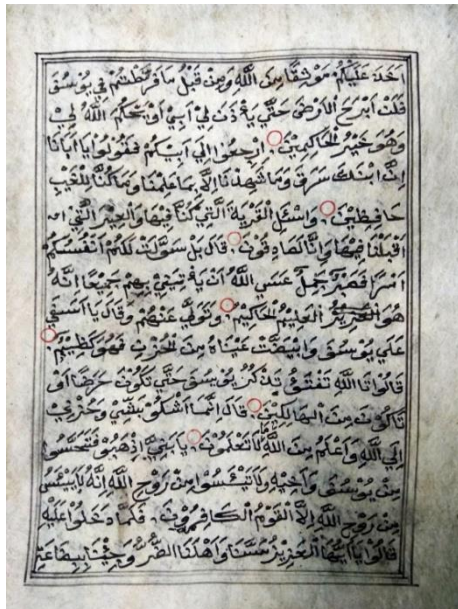 اخذ عليكم موثقا من الله ومن قبل ما فرطتم في يوسف
فلن ابرح الارض حتي ياذن لي ابي او يحكم الله لي
وهو خير الحاكمين ارجعوا الي ابيكم فقولوا يا ابانا
ان ابنك سرق وما شهدنا الا بما علمنا وما كنا للغيب
حافظين واسئل القرية التي كنا فيها والعير التي
اقبلنا فيها وانا لصادقون قال بل سولت لكم انفسكم
امرا فصبر جميل عسي الله ان ياتيني بهم جميعا انه
هو العليم الحكيم وتولي عنهم وقال يا اسفي
علي يوسف وابيضت عيناه من الحزن فهو كظيم
قالوا تا الله تفتؤ تذكر يوسف حتي تكون حرضا او
تكون من الهالكين قال انما اشكو بثي وحزني
الي الله واعلم من الله ما لا تعلمون يا بني اذهبوا فتحسسوا
من يوسف واخيه ولا تيئسوا من روح الله انه لا ييئس
من روح الله الا القوم الكافرون فلما دخلوا عليه
قالوا يا ايها العزيز مسنا واهلنا الضر وجئنا ببضاعة